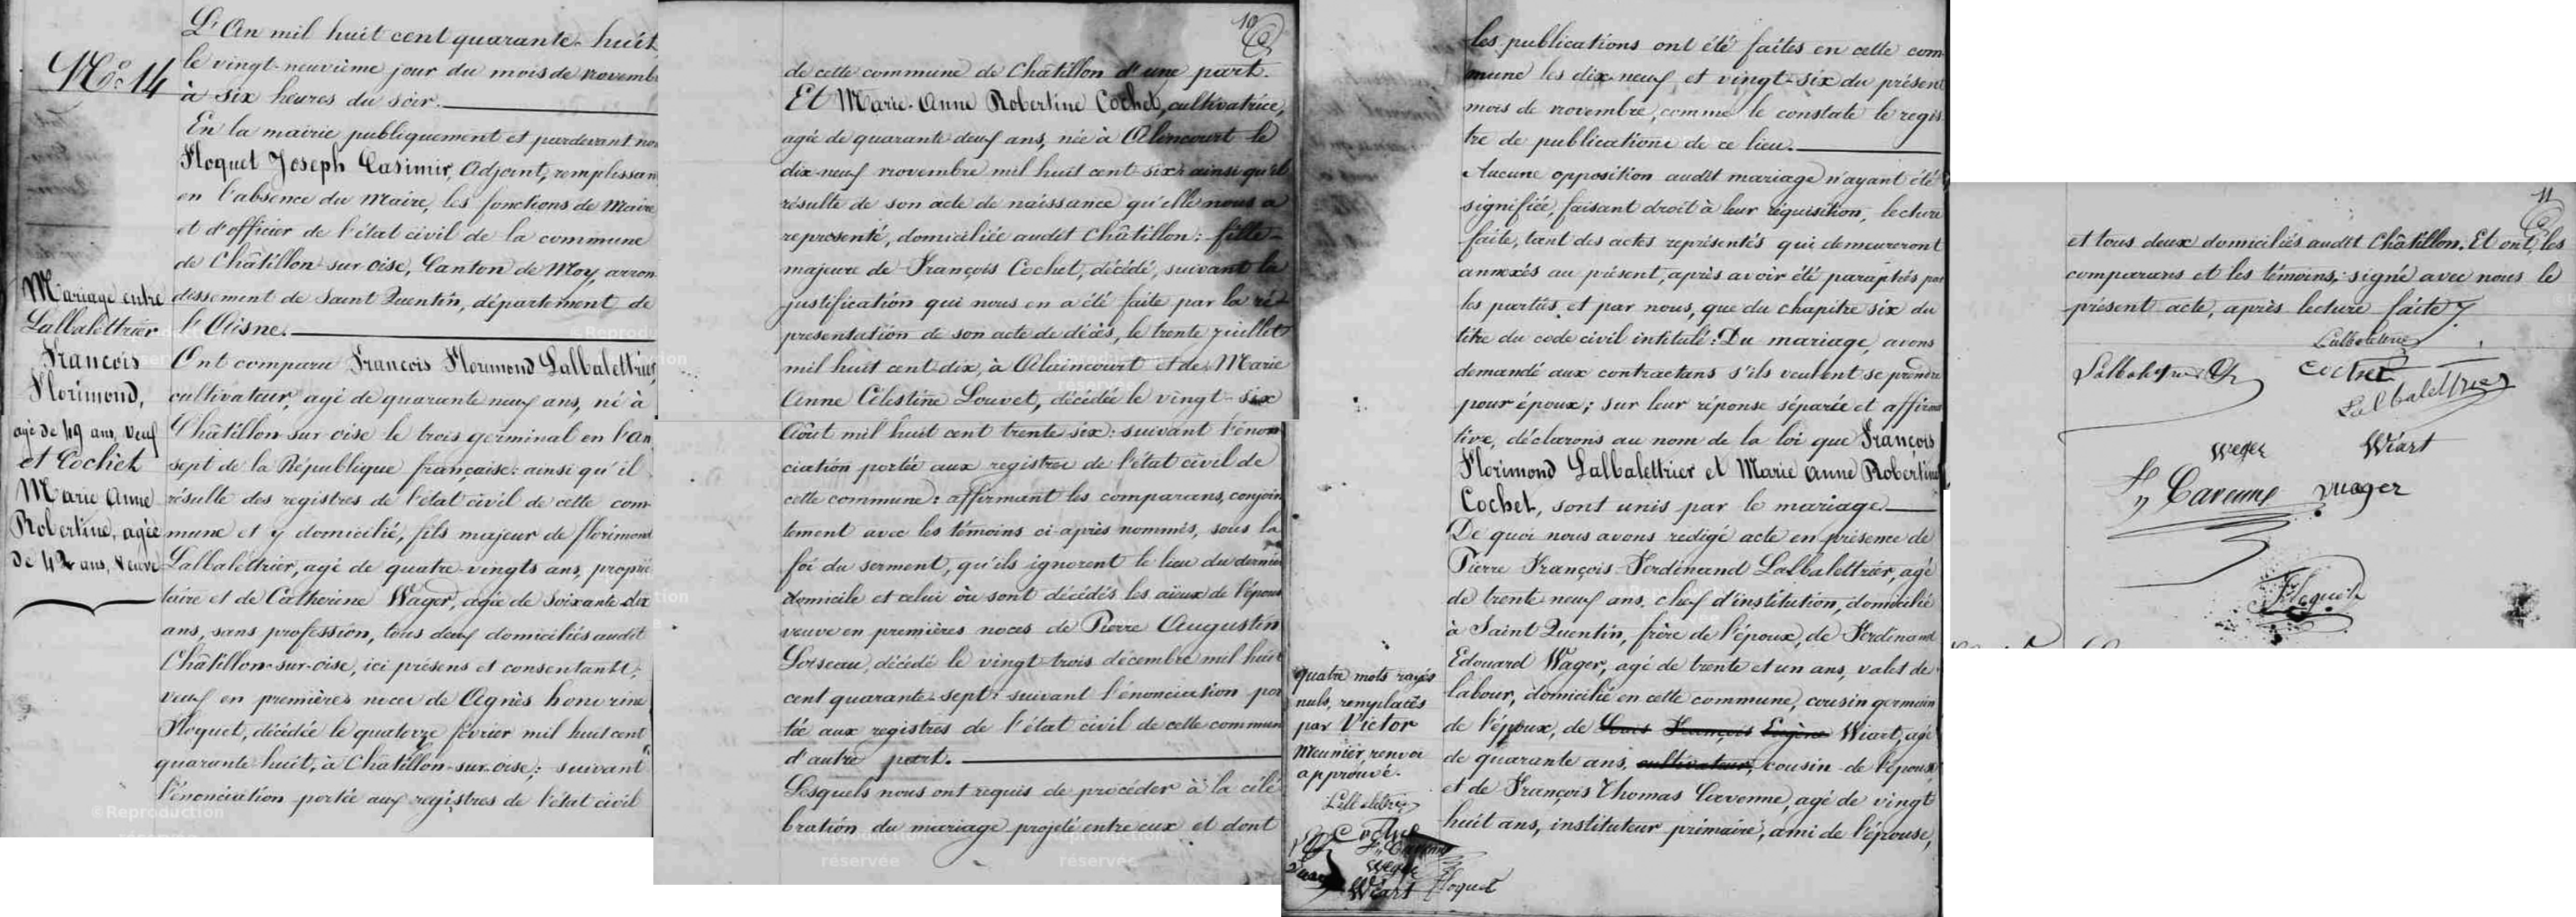 No. 14
Mariage entre
Lalbalettrier
François
Florimond,
agé de 49 ans, Veuf
et Cochet
Marie Anne
Robertine, agée
de 42 ans, Veuve
L'An mil huit cent quarante-huit
le vingt-neuvième jour du mois de novemb
à six heures du soir.
En la mairie publiquement et pardevant no
Floquet Joseph Casimir, Adjoint, remplissan
en l'absence du Maire, les fonctions de Maire
et d'officier de l'état civil de la commune
de Châtillon-sur-oise, Canton de Moy, arron
dissement de Saint Quentin, département de
l'Aisne.
Ont comparu François Florimond Lalbalettrier,
cultivateur, agé de quarante neuf ans, né à
Châtillon-sur-oise le trois germinal en l'an
sept de la République française: ainsi qu'il
résulte des registres de l'état civil de cette com
mune et y domicilié, fils majeur de florimond
Lalbalettrier, agé de quatre-vingts ans, proprié
taire et de Catherine Wager, agée de soixante-dix
ans, sans profession, tous deux domiciliés audit
Châtillon-sur-oise, ici présens et consentants;
veuf en premières noces de Agnès honorine
Floquet, décédée le quatorze février mil huit cent
quarante-huit, à Châtillon-sur-oise; suivant
l'énonciation portée aux registres de l'état civil
10
de cette commune de Châtillon d'une part.
Et Marie-Anne Robertine Cochet, cultivatrice,
agée de quarante deux ans, née à Alincourt le
dix-neuf novembre mil huit cent-six: ainsi qu'il
résulte de son acte de naissance qu'elle nous a
représenté, domiciliée audit Châtillon: fille
majeure de François Cochet, décédé, suivant la
justification qui nous en a été faite par la ré
présentation de son acte de décès, le trente juillet
mil huit cent-dix, à Alaincourt et de Marie
Anne Célestine Louvet, décédée le vingt-six
Août mil huit cent trente six: suivant l'énon
ciation portée aux registres de l'état civil de
cette commune: affirmant les comparans, conjoin
tement avec les témoins ci-après nommés, sous la
foi du serment, qu'ils ignorent le lieu du dernier
domicile et celui où sont décédés les aïeux de l'épouse
veuve en premières noces de Pierre Augustin
Loiseau, décédé le vingt-trois décembre mil huit
cent quarante-sept: suivant l'énonciation por
tée aux registres de l'état civil de cette commun
d'autre part.
Lesquels nous ont requis de procéder à la célé
bration du mariage projeté entre eux et dont
les publications ont été faites en cette com
mune les dix-neuf et vingt-six du présent
mois de novembre, comme le constate le regis
tre de publications de ce lieu.
Aucune opposition audit mariage n'ayant été
signifiée, faisant droit à leur réquisition, lecture
faite, tant des actes représentés qui demeureront
annexés au présent, après avoir été paraphés par
les parties et par nous, que du chapitre six du
titre du code civil intitulé: Du mariage, avons
demandé aux contractans s'ils veulent se prendre
pour époux; sur leur réponse séparée et affirma
tive, déclarons au nom de la loi que François
Florimond Lalbalettrier et Marie Anne Robertine
Cochet, sont unis par le mariage
De quoi nous avons redigé acte en présence de
Pierre François Ferdinand Lalbalettrier, agé
de trente neuf ans, chef d'institution, domicilié
à Saint Quentin, frère de l'époux, de Ferdinand
Edouard Wager, agé de trente et un ans, valet de
labour, domicilié en cette commune, cousin germain
de l'époux, de Louis François Eugène Wiart, agé
de quarante ans, cultivateur, cousin de l'époux
et de François Thomas Cavenne, agé de vingt
huit ans, instituteur primaire, ami de l'épouse,
quatre mots rayés
nuls, remplacés
par Victor
Meunier, renvoi
approuvé.
Cochet
Wager
Wiart Floquet
11
et tous deux domiciliés audit Châtillon. Et ont, les
comparans et les témoins, signé avec nous le
présent acte, après lecture faite.
Lalbalettrier
Cochet
Lalbalettrier
Wager
Wiart
Cavenne
Wager
Floquet
©Reproduction
réservée